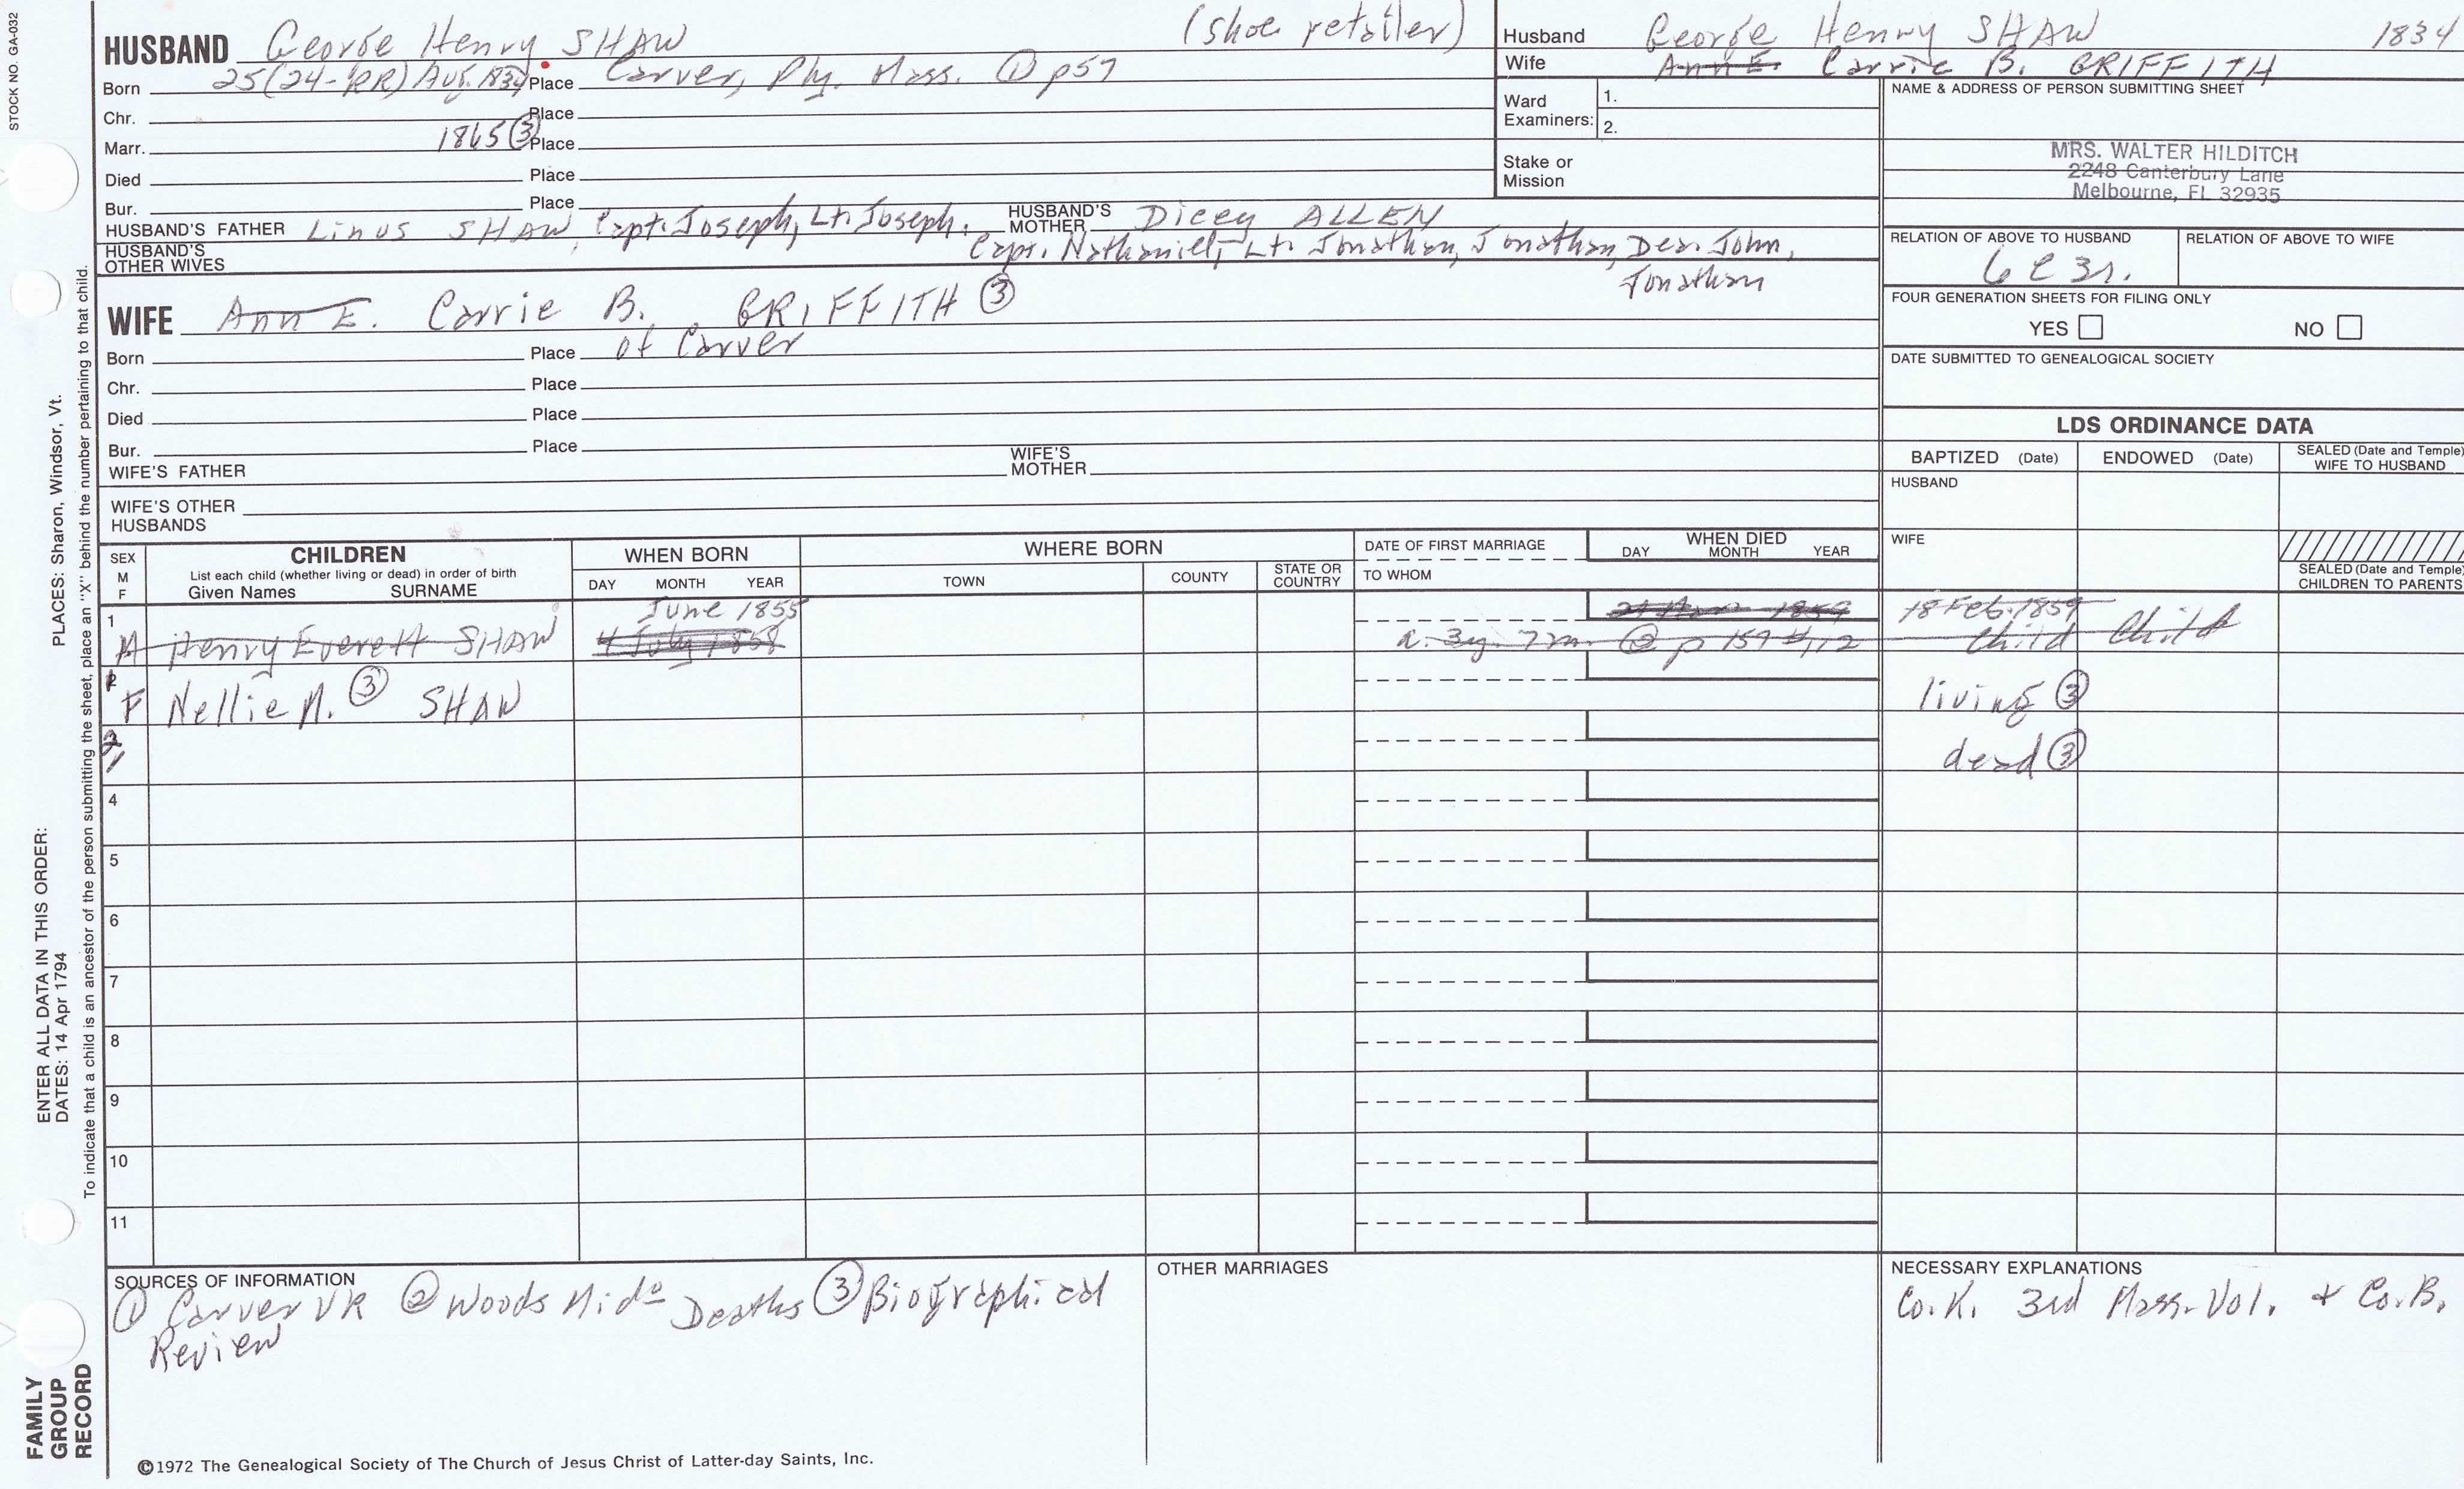 STOCK NO. GA-032
HUSBAND George Henry SHAW (shoe retailer)
Born 25(24-PR) Aug. 1834 Place Carver, Ply. Mass. ① p57
Chr. Place
Marr. 1865 ③ Place
Died Place
Bur. Place
HUSBAND'S FATHER Linus SHAW, Capt. Joseph, Lt. Joseph, HUSBAND'S MOTHER Dicey ALLEN
Capt. Nathaniel, Lt. Jonathan, Jonathan, Dea. John,
Jonathan
HUSBAND'S OTHER WIVES
WIFE Ann E. Carrie B. GRIFFITH ③
Born Place of Carver
Chr. Place
Died Place
Bur. Place
WIFE'S FATHER WIFE'S MOTHER
WIFE'S OTHER HUSBANDS
Husband George Henry SHAW 1834
Wife Ann E. Carrie B. GRIFFITH
Ward Examiners: 1.
2.
Stake or Mission
NAME & ADDRESS OF PERSON SUBMITTING SHEET
MRS. WALTER HILDITCH
2248 Canterbury Lane
Melbourne, FL 32935
RELATION OF ABOVE TO HUSBAND RELATION OF ABOVE TO WIFE
6C3r.
FOUR GENERATION SHEETS FOR FILING ONLY
YES NO
DATE SUBMITTED TO GENEALOGICAL SOCIETY
LDS ORDINANCE DATA
BAPTIZED (Date) ENDOWED (Date) SEALED (Date and Temple) WIFE TO HUSBAND
HUSBAND
WIFE
SEALED (Date and Temple) CHILDREN TO PARENTS
SEX M F
CHILDREN
List each child (whether living or dead) in order of birth
Given Names SURNAME
WHEN BORN
DAY MONTH YEAR
WHERE BORN
TOWN COUNTY STATE OR COUNTRY
DATE OF FIRST MARRIAGE
TO WHOM
WHEN DIED
DAY MONTH YEAR
June 1855 1859 18 Feb. 1859
1 M Henry Everett SHAW 4 July 1858 a. 3y. 7m. ② p 159 #12 Child Child
2 F Nellie M. ③ SHAW living ③
3 dead ③
4
5
6
7
8
9
10
11
SOURCES OF INFORMATION
① Carver VR ② Woods Mido Deaths ③ Biographical
Review
OTHER MARRIAGES
NECESSARY EXPLANATIONS
Co. K. 3rd Mass. Vol. + Co. B.
©1972 The Genealogical Society of The Church of Jesus Christ of Latter-day Saints, Inc.
FAMILY GROUP RECORD
ENTER ALL DATA IN THIS ORDER:
DATES: 14 Apr 1794
PLACES: Sharon, Windsor, Vt.
To indicate that a child is an ancestor of the person submitting the sheet, place an "X" behind the number pertaining to that child.